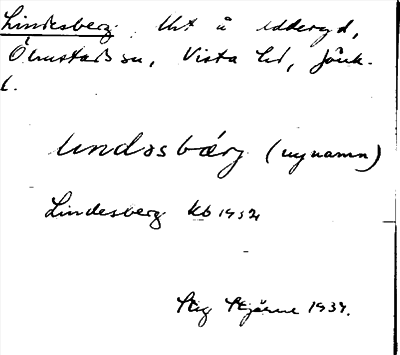 Lindesberg. Uht å Uddaryd,
Ölmstads sn, Vista hd, Jönk.
l.
lındəsbærj (nynamn)
Lindesberg Kb 1932
Stig Stjärne 1934.